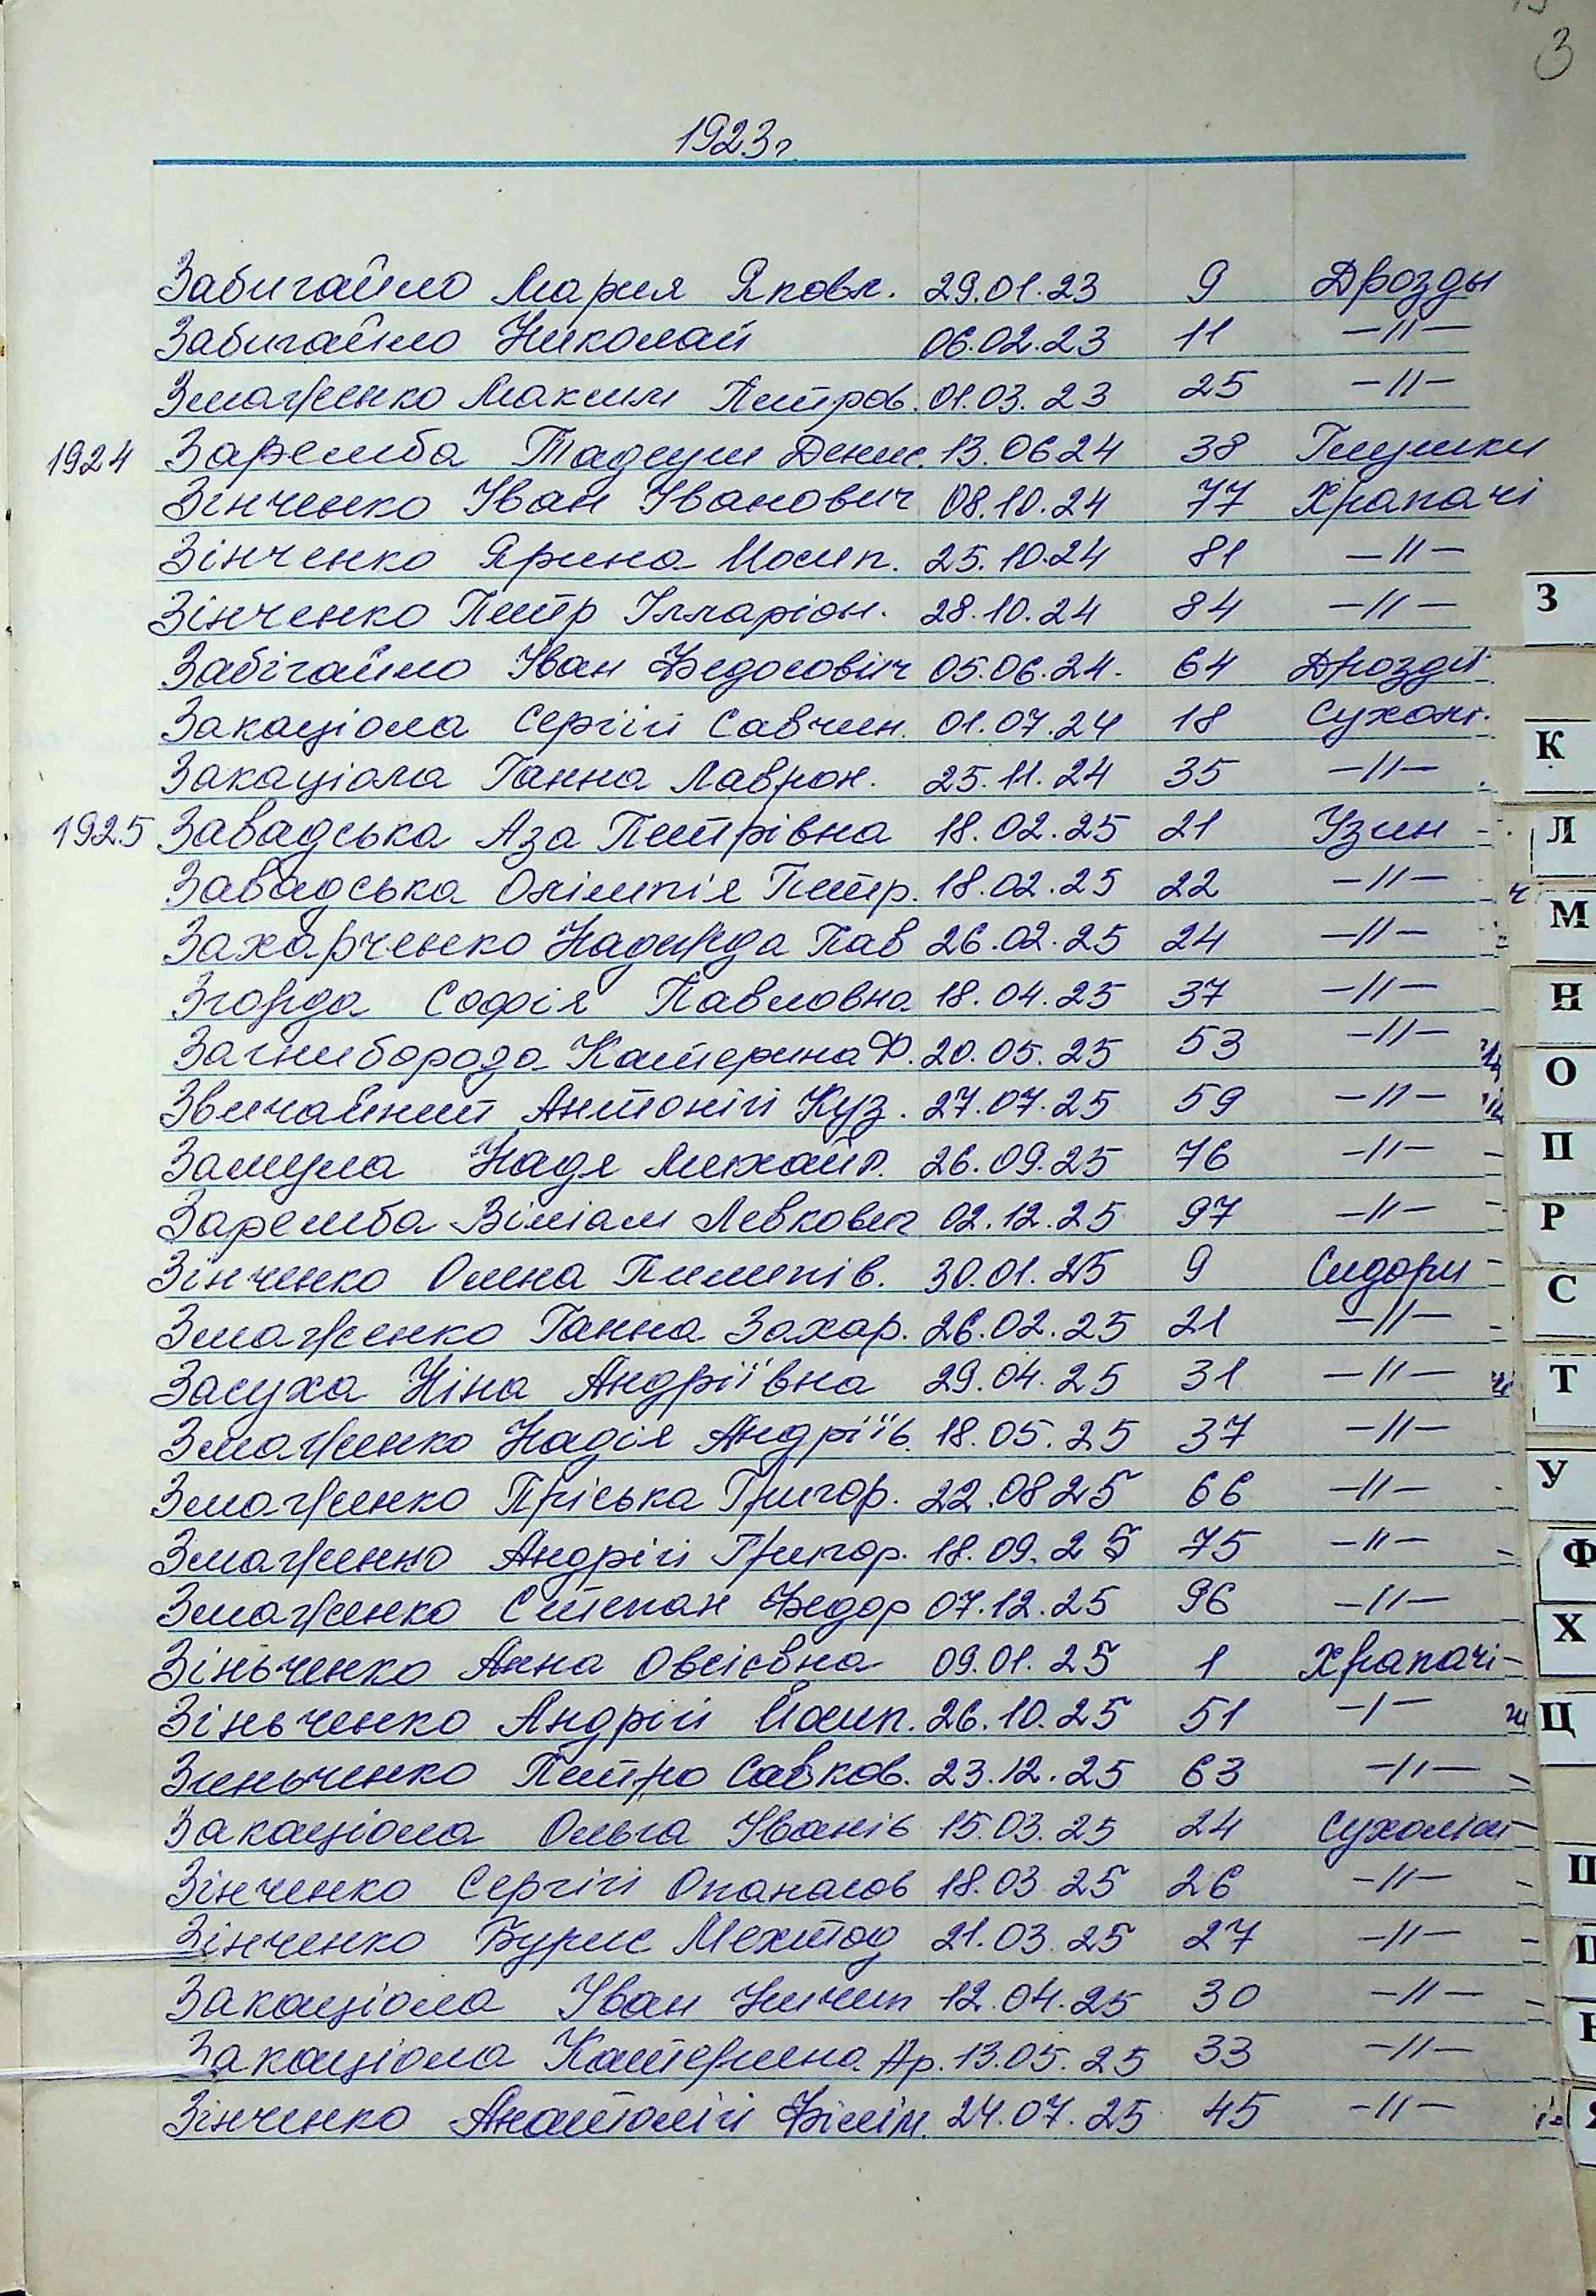 3
1923г.
Забигайло Мария Яковл. 29.01.23 9 Дрозды
Забигайло Николай 06.02.23 11 —//—
Змаженко Максим Петров. 01.03.23 25 —//—
1924 Заремба Тадеуш Денис. 13.0624 38 Глушки
Зінченко Іван Іванович 08.10.24 77 Храпачі
Зінченко Ярина Йосип. 25.10.24 81 —//—
Зінченко Петр Ілларіон. 28.10.24 84 —//—
Забігайло Іван Федосович 05.06.24. 64 Дрозди
Закаціола Сергій Савчин. 01.07.24 18 Сухолі.
Закаціола Ганна Лаврон. 25.11.24 35 —//—
1925 Завадська Аза Петрівна 18.02.25 21 Узин
Завадська Олімпія Петр. 18.02.25 22 —//—
Захарченко Надежда Пав 26.02.25 24 —//—
Згорда Софія Павловна 18.04.25 37 —//—
Загниборода Катерина Ф. 20.05.25 53 —//—
Звичайний Антоній Куз. 27.07.25 59 —//—
Замула Надя Михайл. 26.09.25 76 —//—
Заремба Віліам Левкович 02.12.25 97 —//—
Зінченко Олена Пилипів. 30.01.25 9 Сидори
Змаженко Ганна Захар. 26.02.25 21 —//—
Засуха Ніна Андріївна 29.04.25 31 —//—
Змаженко Надія Андріїв. 18.05.25 37 —//—
Змаженко Пріська Григор. 22.0825 66 —//—
Змаженко Андрій Григор. 18.09.25 75 —//—
Змаженко Степан Федор 07.12.25 96 —//—
Зіньченко Анна Овсієвна 09.01.25 1 Храпачі
Зіньченко Андрій Йосип. 26.10.25 51 —/—
Зиньченко Петро Савков. 23.12.25 63 —//—
Закаціола Ольга Іванів 15.03.25 24 Сухоліси
Зінченко Сергій Опанасов 18.03.25 26 —//—
Зінченко Бурис Мехтод 21.03.25 27 —//—
Закаціола Іван Ничип 12.04.25 30 —//—
Закаціола Катерина Ар. 13.05.25 33 —//—
Зінченко Анатолій Філім. 24.07.25 45 —//—
З
К
Л
М
Н
О
П
Р
С
Т
У
Ф
Х
Ц